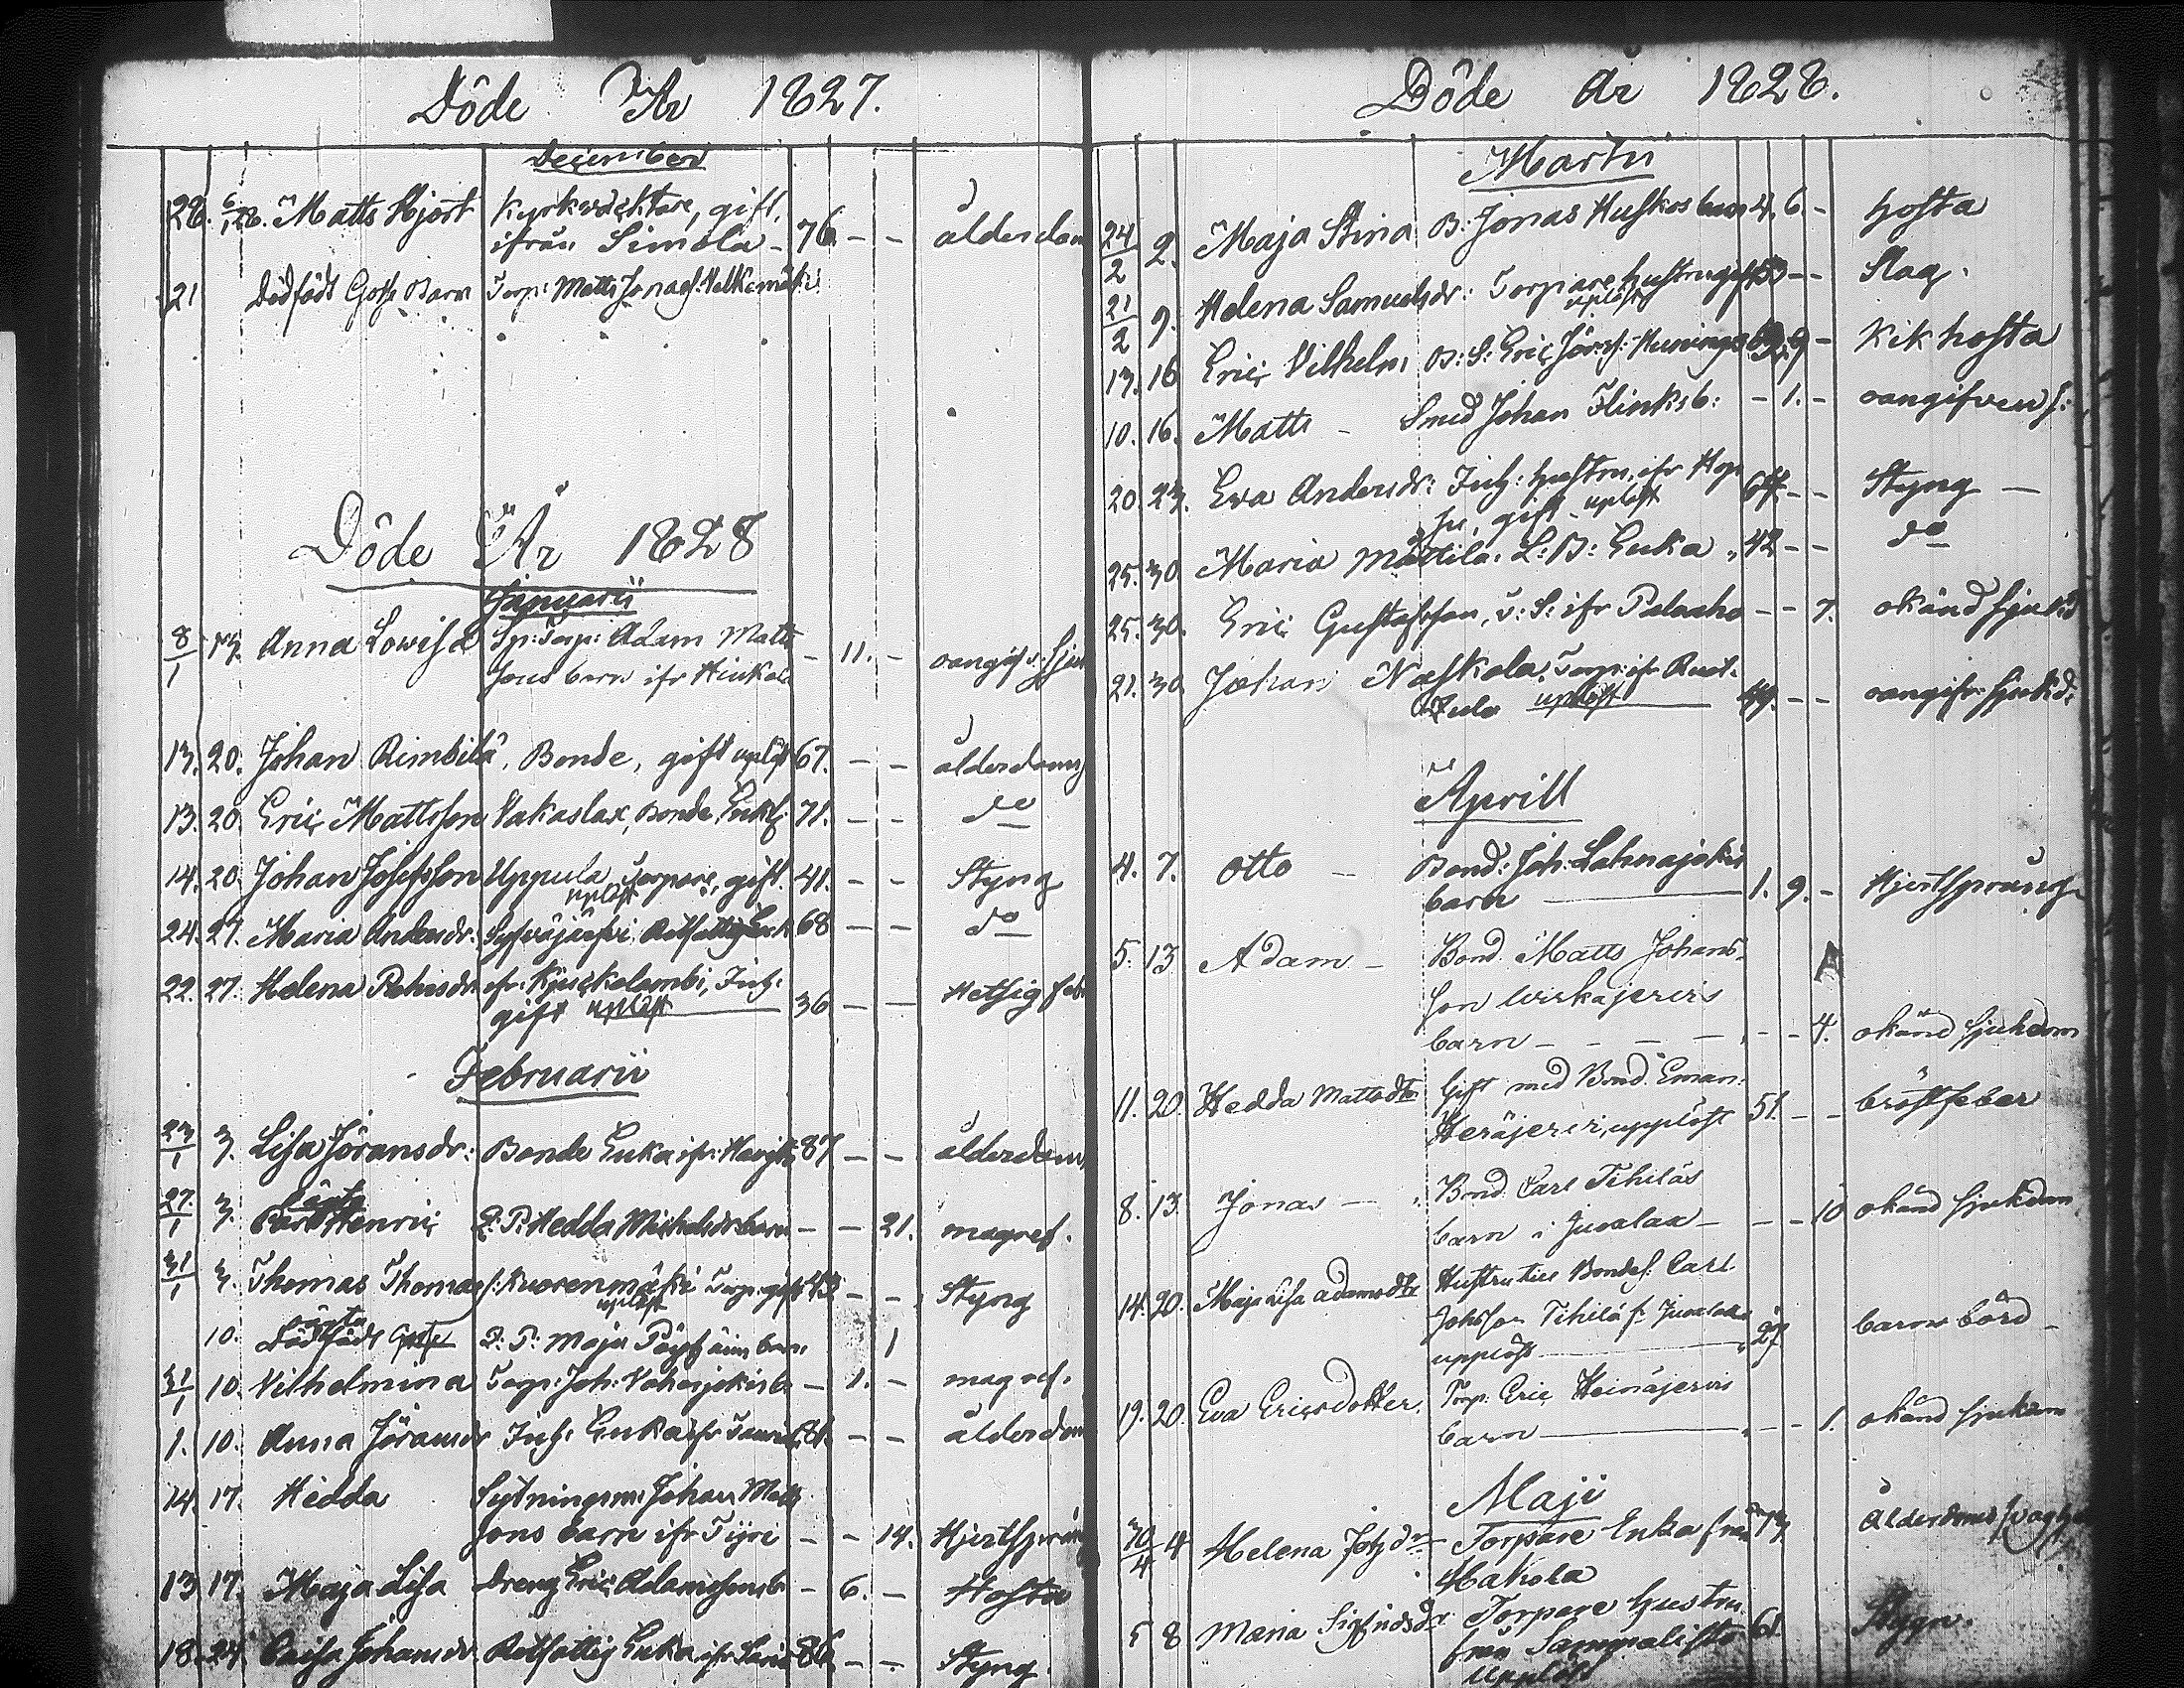 Döde År 1827.
December
28. 6/1 28. Matts Hjort Kyrkväktare, gift,
ifrån Simola - 76 - - ålderdom
21 Dödfödt Gosse Barn Torp: Matts Jonaes.
Döde År 1828
Januarii
8/1 13. Anna Lovisa Sp: Torp: Adam Matts
sons barn ifr - 11. - oangifv: sjuk
13. 20. Johan Rimbilä, Bonde, gift uplöst 67. - - ålderdoms
13. 20. Eric Mattsson Vakaslax, Bonde, Enkl: 71. - - do
14. 20. Johan Josefsson Uppula Torpare, gift. 41. - - Styng
uplöst
24. 27. Maria Andersdr: Rotfattig Enk 68 - - do
22. 27. Helena Pehrsdr: ifr: Inh:
gift uplöst 36 - - Hetsig feb
Februarii
23/1 3. Lisa Jöransdr: Bonde Enka ifr: 87 - - ålderdom
27./1 3. Henric P: Hedda Michelsdr barn - - 21. magref.
31/1 3. Thomas Thomas s: Kuorenmäki Torp: gift 43 - - Styng
uplöst
10. Dödfödt P: Maja barn. 1
31/1 10. Vilhelmina Torp: Joh: - 1. - magref.
1. 10. Anna Jöransdr Inh: Enka ifr 81. - - ålderdom
14. 17. Hedda Sytningsm: Johan Matts
sons barn ifr Tyri - - 14. Hjertsprång
13 17. Maja Lisa Dreng Eric Adamssons b - 6. - Hosta
18. 24. Caisa Johansdr Rotfattig Enka ifr 86 - - Styng.
Döde År 1828.
Martii
24/2 2. Maja Stina B: Jonas barn 4. 6. - hosta
21/2 9. Helena Samuelsdr: Torpare hustru gift 53 - - Slag.
uplöst
13. 16 Eric Vilhelm B: S: Eric - Kikhosta
10. 16. Matts - Smed Johan Flinks b: - 1. - oangifven s:
20. 23. Eva Andersdr: Inh: hustru, ifr
gift uplöst 64 - - Styng -
25. 30. Maria Mattila. L: B: Enka 42 - - do
25. 30. Eric Gustafsson, T: S: ifr - - 7. okänd sjukd
21. 30. Johan Naskola, Torp: ifr
uplöst 49. - - oangifv: sjukd:
Aprill
4. 7. Otto - Bond: Joh: Lahnajokis
barn 1. 9. - Hjertsprång
5. 13 Adam - Bond. Matts Johans-
son
barn - - - - - - 4. okänd sjukdom
11. 20. Hedda Mattsdtr Gift med Bond. Eman:
Heräjervi, upplöst 51. - - bröstfeber
8. 13. Jonas - Bond Carl Tihiläs
barn i Juvalax - - - 10 okänd sjukdom
14. 20. Maja Lisa Adamsdtr Hustru till Bondes. Carl
Johsson Tihilä fr
upplöst 27 barns börd -
19. 20. Eva Ericsdotter. Torp. Eric Heinäjervis
barn - - 1. okänd sjukdom
Maji
30/4 4 Helena Johsdr Torpare Enka från 73 Ålderdoms svaghet
Hakola
5 8 Maria Sigfridsdr Torpare hustru
från Sammalisto 61 Styng.
Upplöst